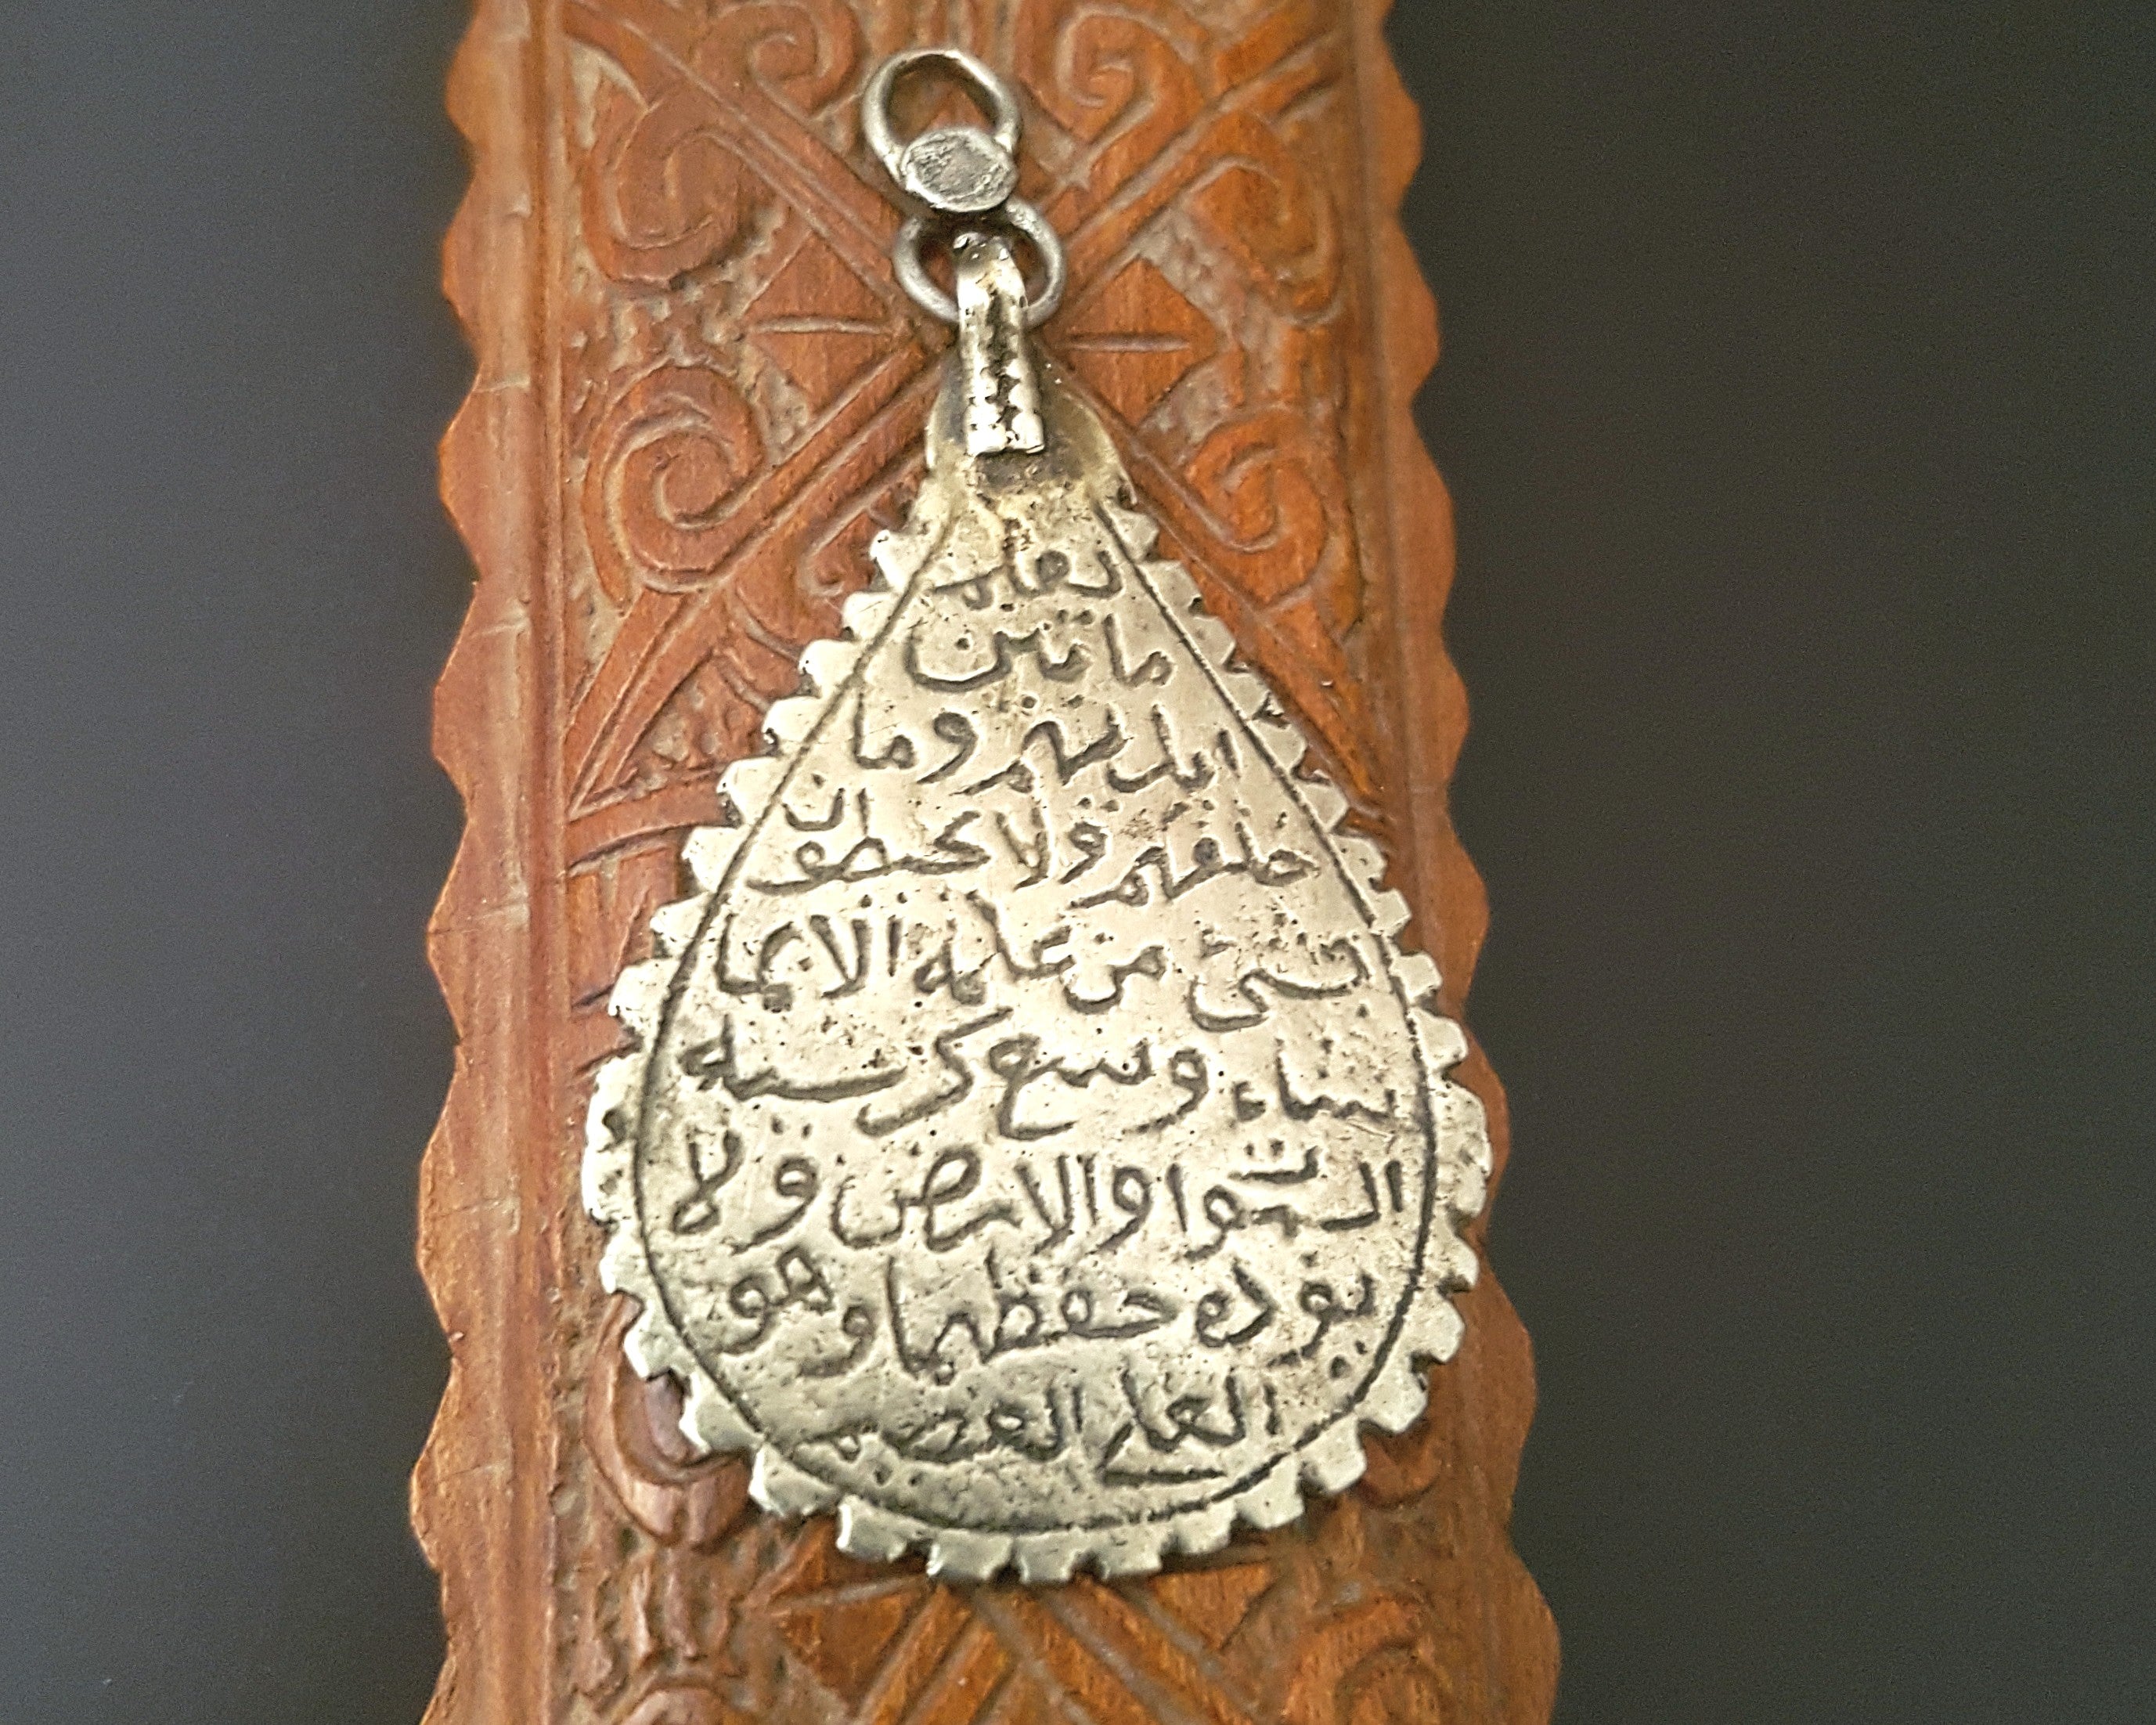 يعلم
ما بين
ايديهم وما
خلفهم ولا يحيطون
بشئ من علمه الا بما
شاء وسع كرسيه
السموات والارض ولا
يؤده حفظهما وهو
العلي العضيم